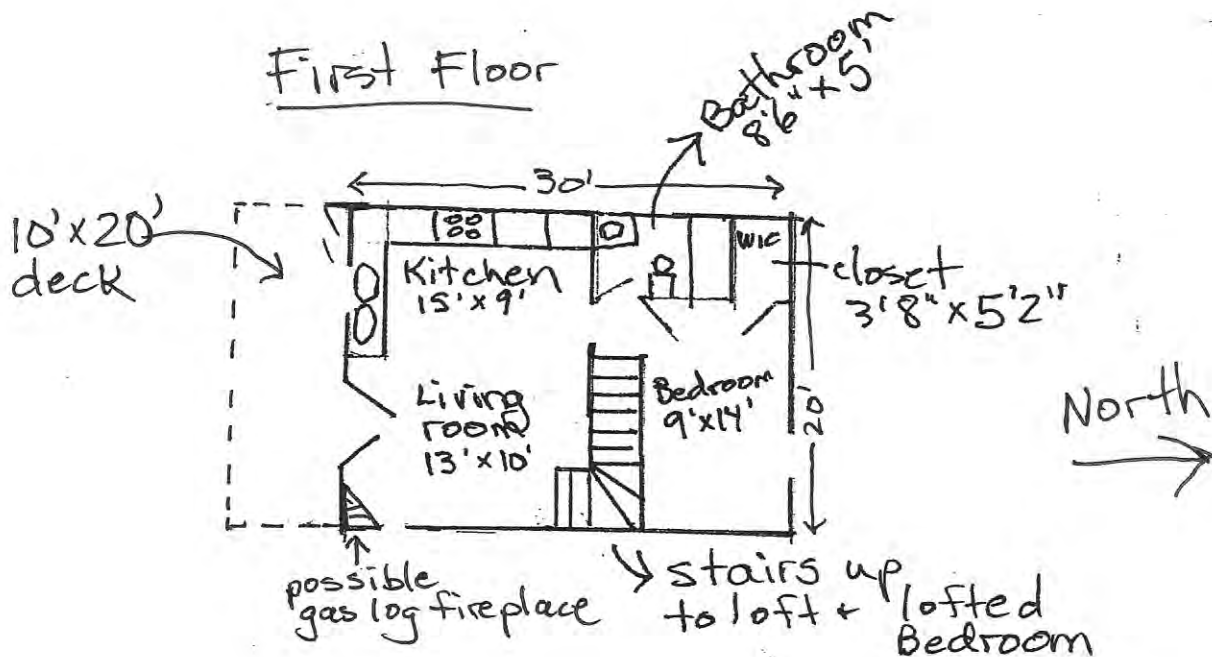 First Floor
Bathroom
8'6" + 5'
30'
10' x 20'
deck
Kitchen
15' x 9'
WIC
closet
3'8" x 5'2"
Living
room
13' x 10'
Bedroom
9' x 14'
20'
North
possible
gas log fireplace
stairs up
to loft +
lofted
Bedroom